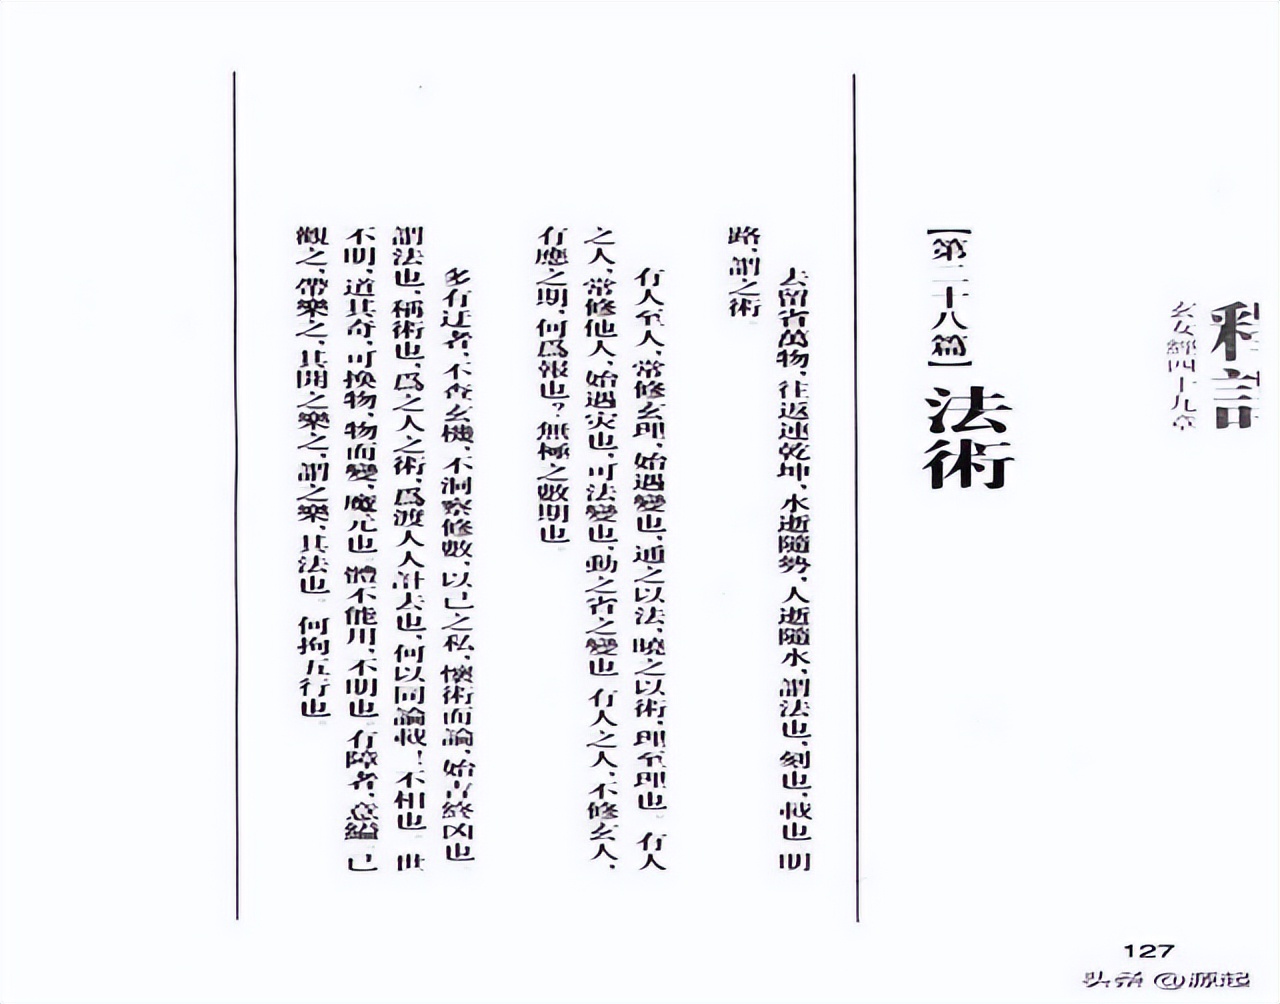 釋言
玄女經四十九章
【第二十八篇】法術
去留省萬物、往返連乾坤、水逝隨勢、人逝隨水、謂法也、刻也、戟也 明
路、謂之術
有人至人、常修玄理、始遇變也、通之以法、曉之以術、理至理也。有人
之人、常修他人、始遇災也、可法變也、動之省之變也 有人之人、不修玄人、
有應之期、何爲報也？無極之數期也。
多有迂者、不查玄機、不洞察修數、以己之私、懷術而論、始吉終凶也
謂法也、稱術也、爲之人之術、爲渡人人計去也、何以同論哉！不相也。世
不明、道其奇、可換物、物而變、魔尢也 體不能用、不明也。有障者、意 已
觀之、帶樂之、其開之樂之、謂之樂、其法也。何拘五行也。
127
头条 @源起